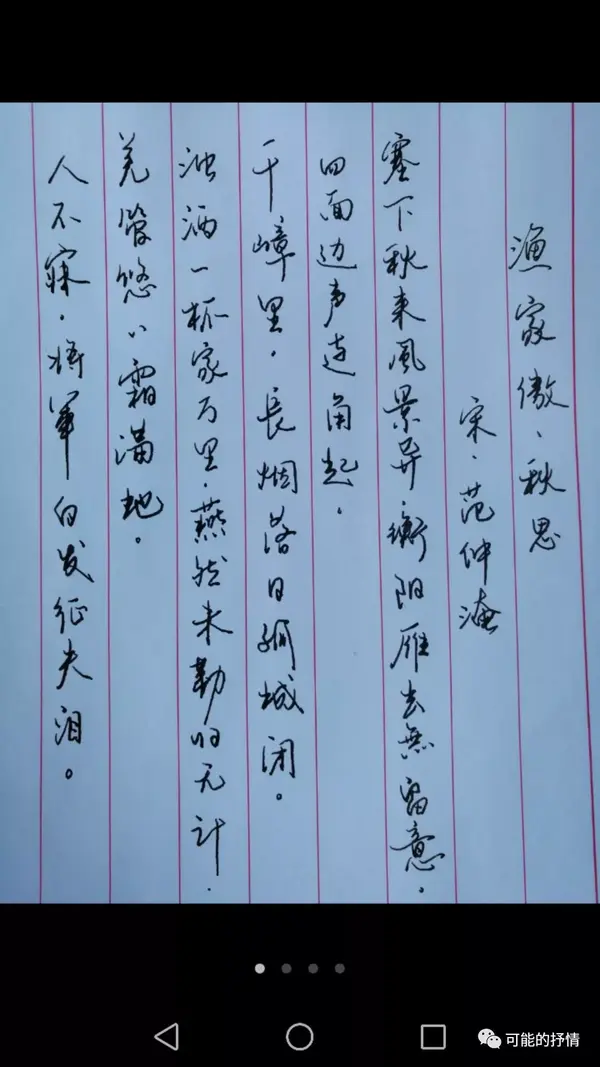 渔家傲、秋思
宋·范仲淹
塞下秋来風景异.衡阳雁去無留意.
四面边声连角起.
千嶂里.長烟落日孤城闭。
浊酒一杯家万里.燕然未勒归无计.
羌管悠々霜满地。
人不寐.将军白发征夫泪。
可能的抒情